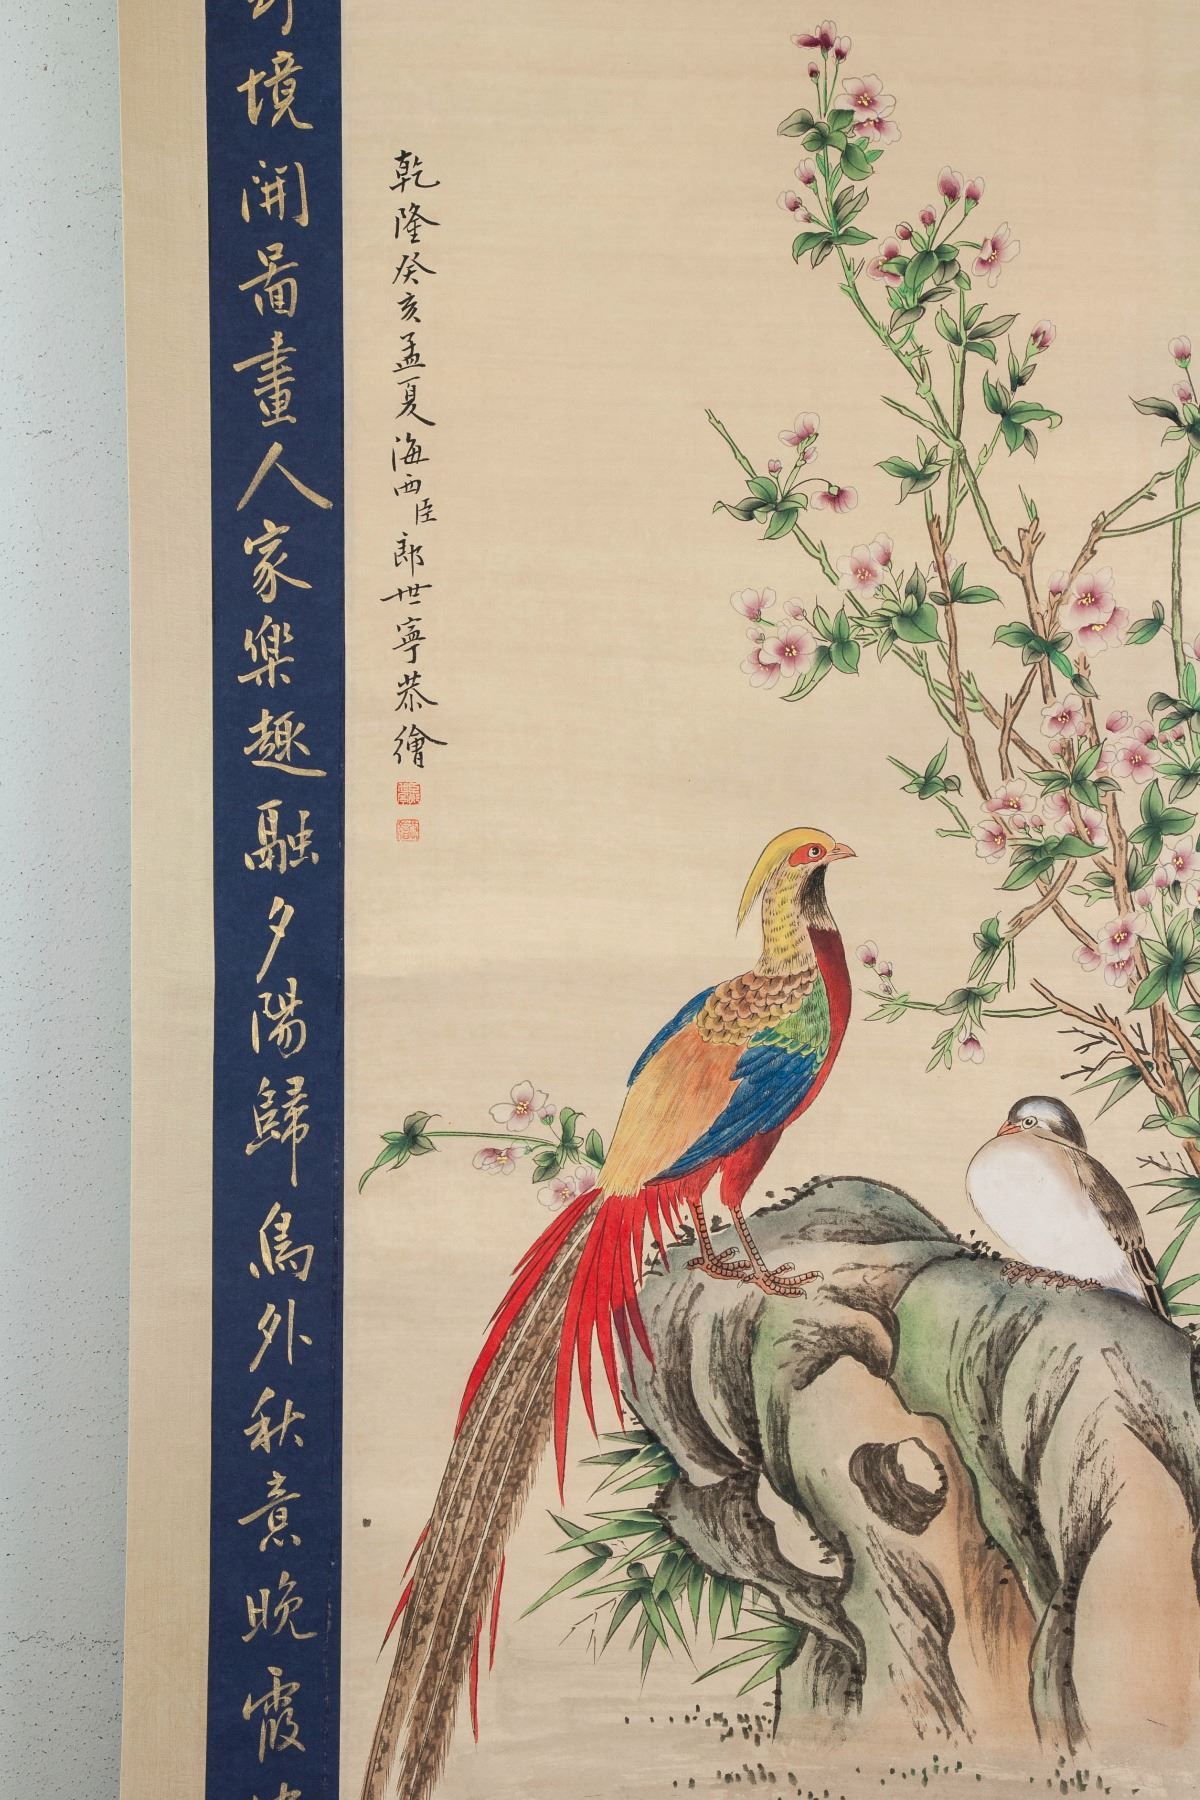 乾隆癸亥孟夏海西臣郎世寧恭繪
境開圖畫人家樂趣融夕陽歸鳥外秋意晚霞